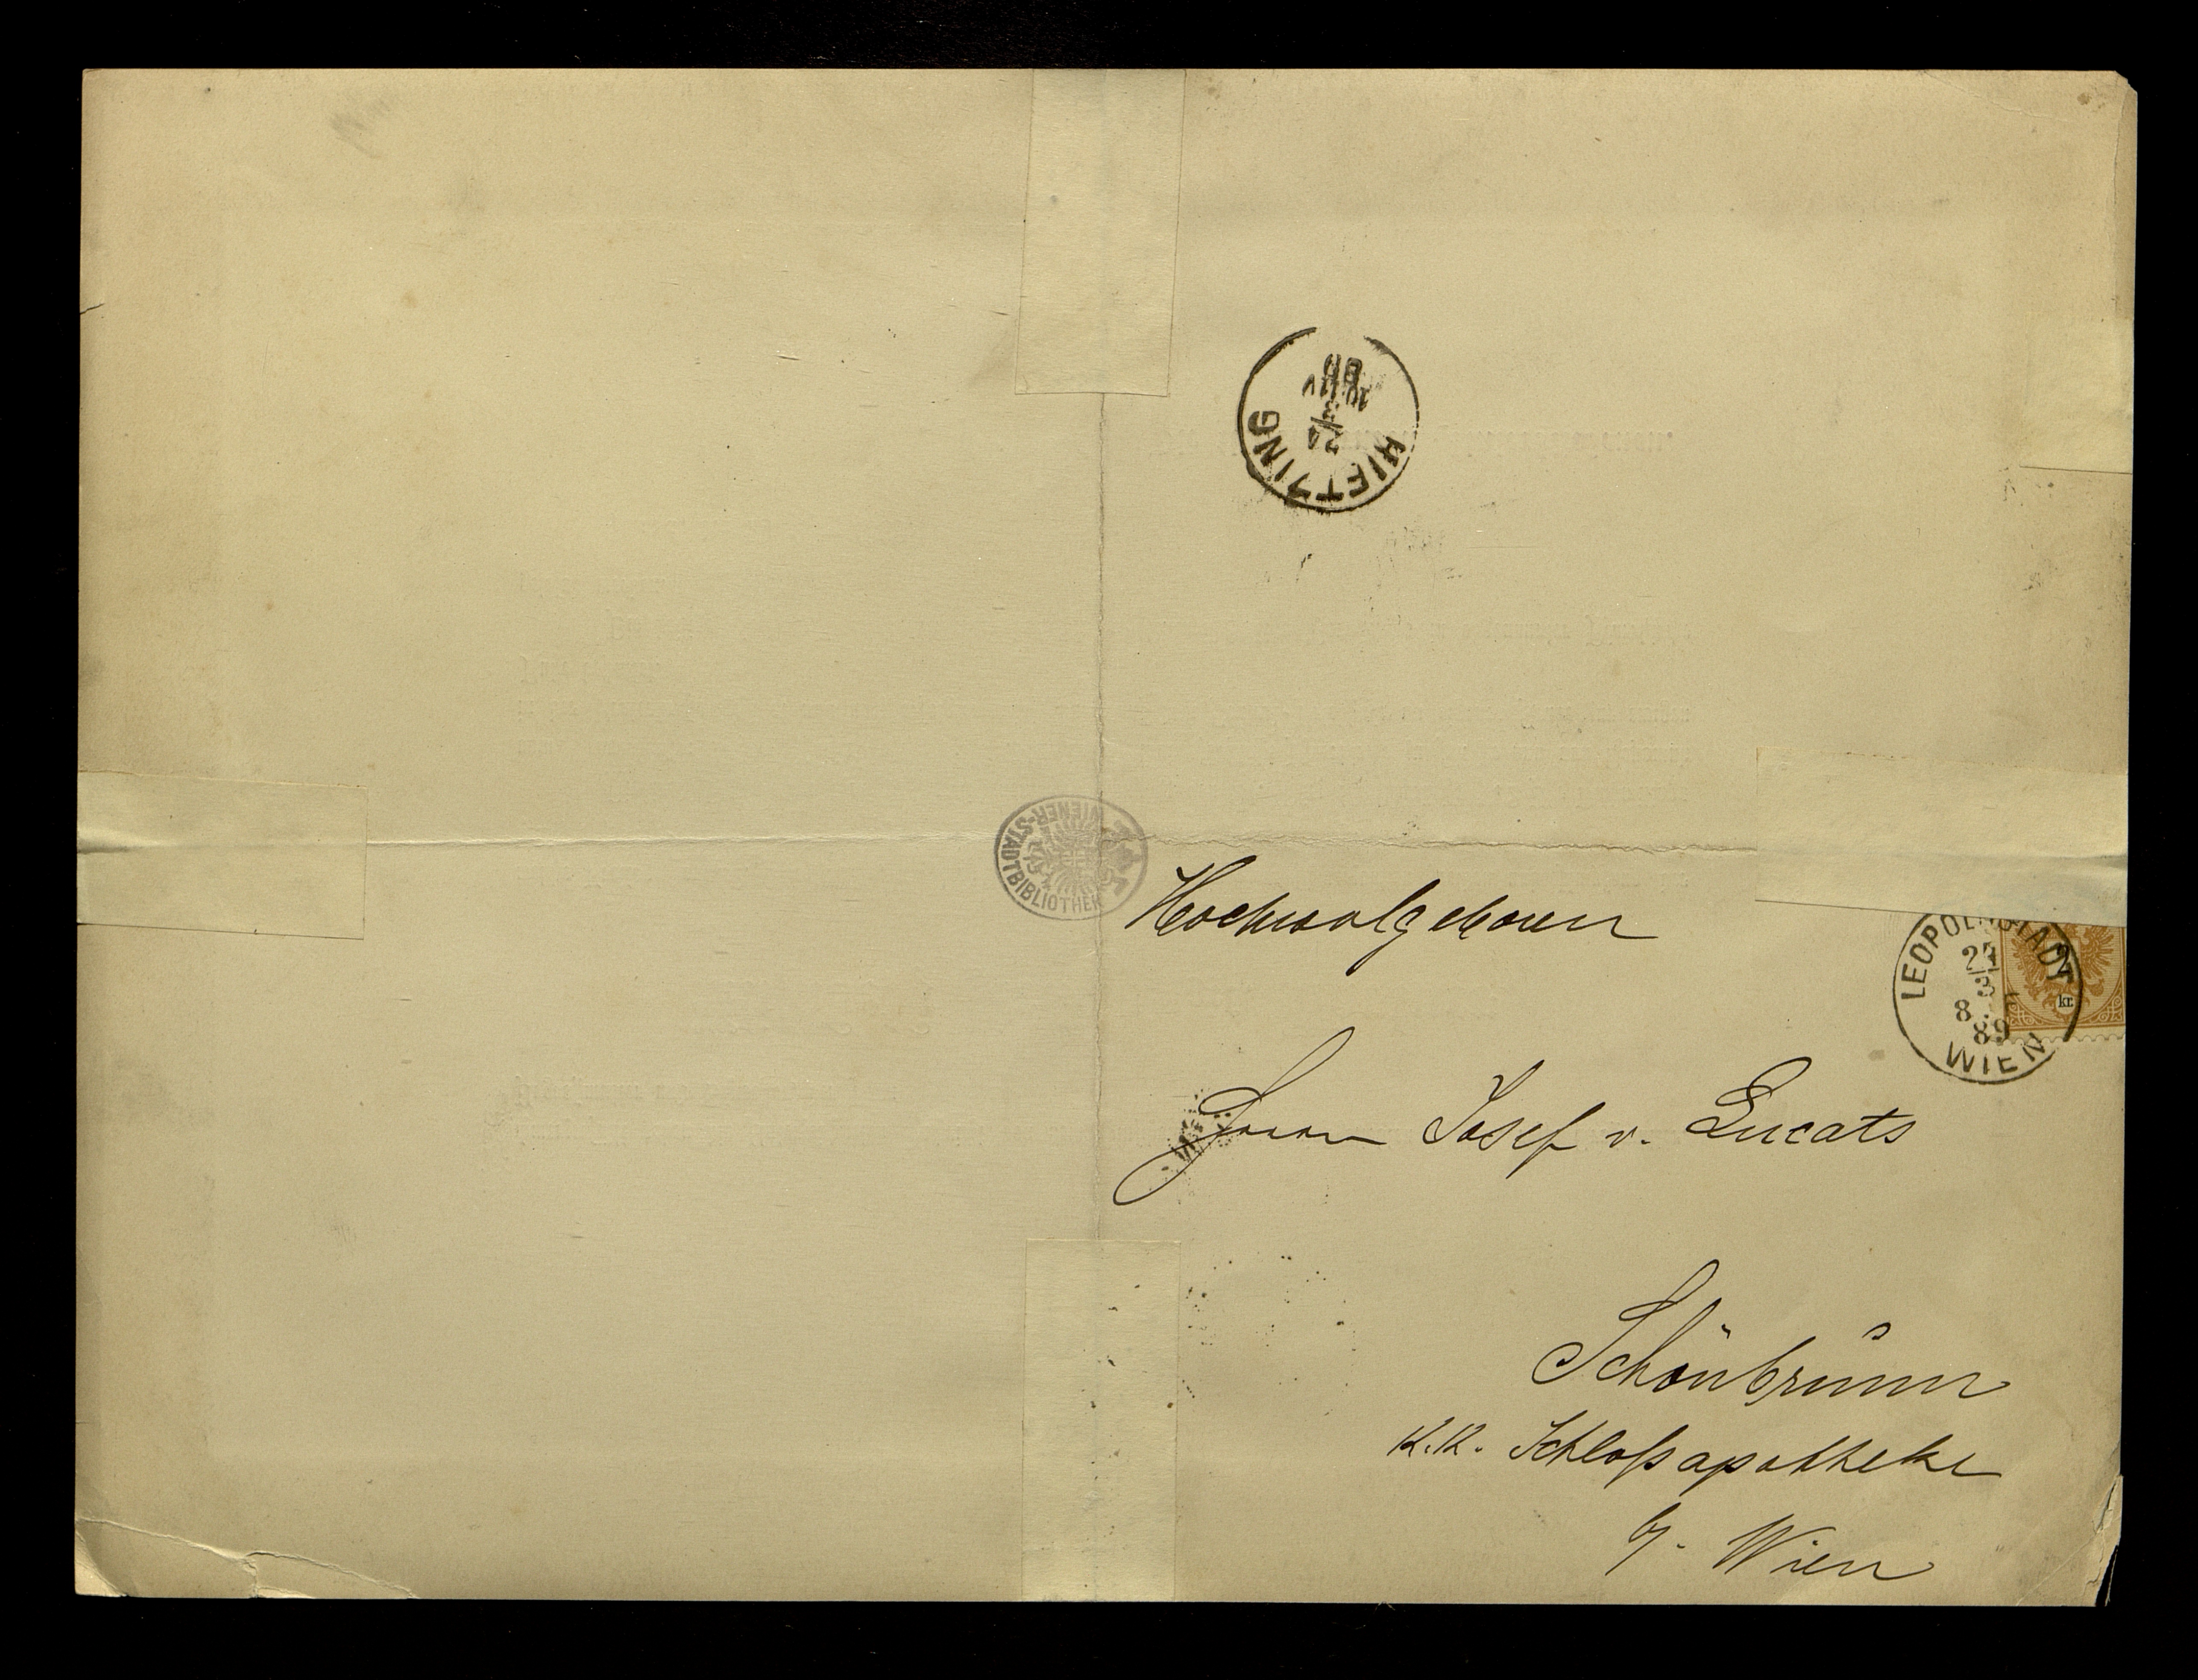 HIETZING
24
3
LEOPOLDSTADT
3
89
WIEN
2
kr.
WIENER-STADTBIBLIOTHEK
Hochwolgeboren
Herrn Josef v. Lucats
Schönbrunn
K. K. Schloßapotheke
b/. Wien